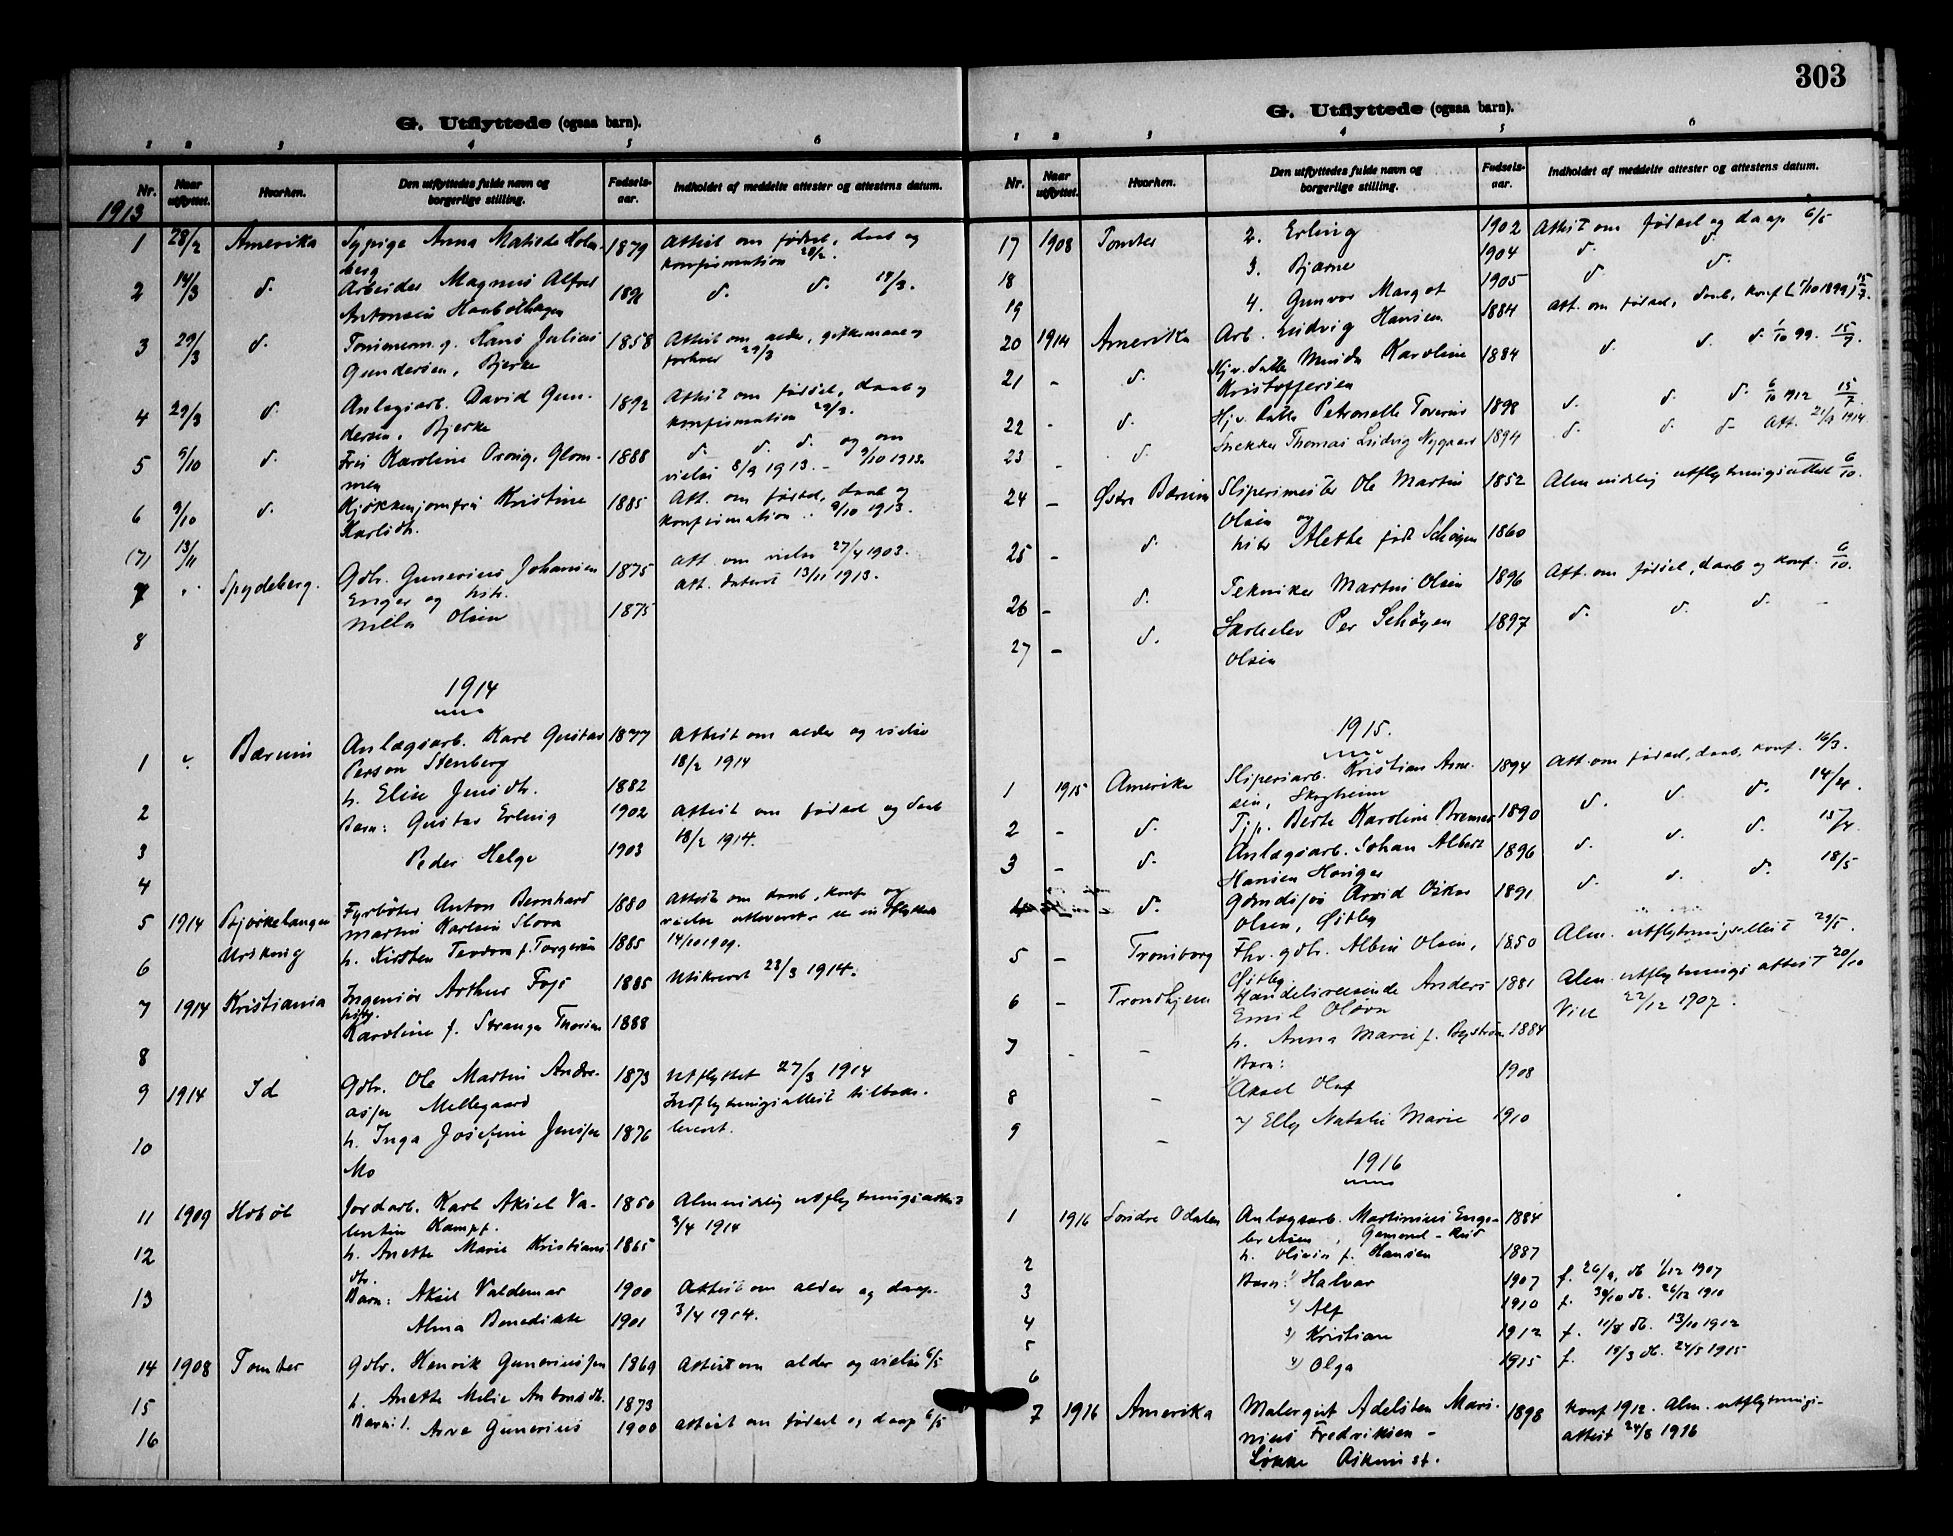 303
G. Utflyttede (ogsaa barn).
1 2 3 4 5 6
Nr. Naar utflyttet. Hvorhen. Den utflyttedes fulde navn og borgerlige stilling. Fødsels-aar. Indholdet af meddelte attester og attestens datum.
1913
1 28/2 Amerika Sypige Anna Matilde Holm- 1879 Attest om fødsel, daab og
berg konfirmation 28/2.
2 14/3 d. Arbeider Magnus Alfred 1891 d. d. 14/3.
Antonsen
3 29/3 d. Tømmerm. g. Hans Julius 1858 Attest om alder, giftermaal og
Gundersen, Bjerke forhver 29/3
4 29/3 d. Anlægsarb. David Gun- 1892 Attest om fødsel, daab og
dersen, Bjerke konfirmation 29/3.
5 9/10 d. Frü Karoline Glom- 1888 d. d. d. og om
men vielse 8/9 1913. - 9/10 1913.
6 9/10 d. Kjøkkenjomfru Kristine 1885 Att. om fødsel, daab og
Karlsdtr. konfirmation. 9/10 1913.
(7) 13/11
7 " Spydeberg. Gdbr. Gunerius Johansen 1875 Att. om vielse 27/4 1903.
Enger og hstr. Att. dateret 13/11 1913.
8 Milla Olsen 1875
1914
1 Bærum Anlægsarb. Karl Gustav 1877 Attest om alder og vielse
Person Stenberg 18/2 1914
2 h. Elise Jensdtr. 1882
3 Barn: Gustav Erling 1902 Attest om fødsel og daab
4 Peder Helge 1903 18/2 1914.
5 1914 Bjørkelangen Fyrbøter Anton Bernhard 1880 Attest om daab, konf. og
Urskoug Martin Karlsen Slora vielse utleveret
6 h. Kirsten Teodora f. Torgersen 1885 14/10 1909.
7 1914 Kristiania Ingeniør Arthur Foss 1885 Utskrevet 23/3 1914.
8 Karoline f. Strange Thorsen 1888
9 1914 Id Gdbr. Ole Martin Andre- 1873 Utflyttet 27/3 1914
assen Mellegaard Indflytningsattest tilbake-
10 h. Inga Josefine Jenssen 1876 levert.
Mo
11 1909 Hobøl Jordarb. Karl Aksel Va- 1850 Almindelig utflytningsattest
lentin Kampf. 3/4 1914
12 h. Anette Marie Kristians 1865
dtr.
13 Barn: Aksel Valdemar 1900 Attest om alder og daap.
Alma Benedikte 1901 3/4 1914.
14 1908 Tomter Gdbr. Henrik Gunerius­sen 1869 Attest om alder og vielse 6/5
15 h. Anette Melie Antonsdtr. 1873
16 Barn: 1. Arne Gunerius 1900 attest om fødsel og daap 6/5
G. Utflyttede (ogsaa barn).
1 2 3 4 5 6
Nr. Naar utflyttet. Hvorhen. Den utflyttedes fulde navn og borgerlige stilling. Fødsels-aar. Indholdet af meddelte attester og attestens datum.
17 1908 Tomter 2. Erling 1902 Attest om fødsel og daap 6/5
18 3. Bjarne 1904 d. d.
19 4. Gunvor Margot 1905 d d.
20 1914 Amerika Arb. Ludvig Hansen 1884 Att. om fødsel, daab, konf. (1/10 1899) 15/7.
21 - d. Hj.v. datter Karoline 1884 d. d. d. 1/10 99. 15/7.
Kristoffersen
22 - d. Hj.v. datter Petronelle Toverud 1898 d. d. d. 6/10 1912 15/7.
23 - d. Snekker Thomas Ludvig Nygaard 1894 d. d. d. Att. 1914
24 - Østre Bærum Sliperimester Ole Martin 1852 Almindelig utflytningsattest 6/10.
Olsen og
25 - d. hstr Alette født Schøyen 1860
26 - d. Tekniker Martin Olsen 1896 Att. om fødsel, daab og konf. 6/10.
27 - d. Per Schøyen 1897 d. d. d. -
Olsen
1915.
1 1915 Amerika Sliperiarb. Kristian Arne- 1894 Att. om fødsel, daab, konf. 16/3.
sen, Skogheim
2 - d. Tjp. Berte Karoline Bremer 1890 d. d. d. 14/4.
3 - d. Anlægsarb. Johan Albert 1896 d. d. d. 15/4.
Hansen
4 d. Arvid Oskar 1891 d. d. d. 18/5
Olsen, Østby
5 - Tronsborg Fhv. gdbr. Albin Olsen, 1850 Alm. utflytningsattest 29/5.
Østby
6 - Trondhjem Handelsreisende Anders 1881 Alm. utflytnings attest 20/10
Emil Olsen Viet 22/12 1907.
7 - - h. Anna Marie f. Bystrøm 1884
Barn:
8 - 1) Aksel Oluf 1908
9 - 2) Elly Natalie Marie 1910
1916
1 1916 Søndre Odalen Anlægsarb. Martinius Enge- 1884
bretsen, Grønsund-Rud
2 h. Olivia f. Hansen 1887
3 Barn: 1) Halvar 1907 f. 26/9, db. 1/12 1907
4 2) Alf 1910 f. 30/10 db. 26/12 1910
5 3) Kristian 1912 f. 11/8 db. 13/10 1912
6 4) Olga 1915 f. 19/3 db. 24/5 1915
7 1916 Amerika Malergut Adelsten Mari- 1898 Konf 1912. Alm. utflytnings-
nius Fredriksen - attest 24/8 1916
Løkke Askim st.